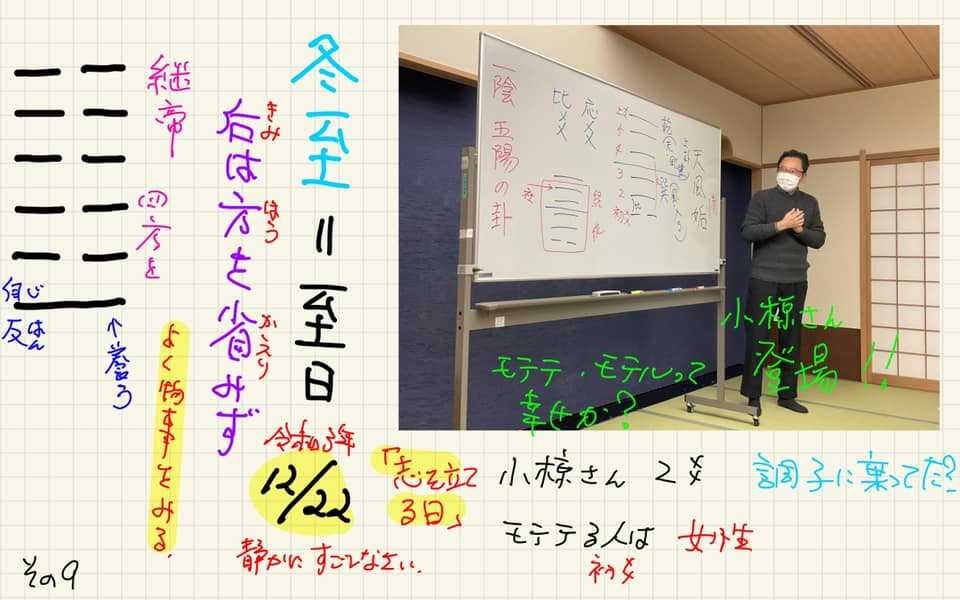 冬至=至日
后は方を省みず
きみ
はう
かえり
継帝
四方を
よく物事をみる。
自反
じ
はん
令和3年
12/22
「志を立て
る日」
静かにすごしなさい。
その9
一陰五陽の卦
比爻
応爻
上爻
5
4
3
2
初爻
天風姤
小椋さん
登場!!
モテテ、モテルって
幸せか?
小椋さん 2爻
調子に乗ってた?
モテテる人は 女性
初爻